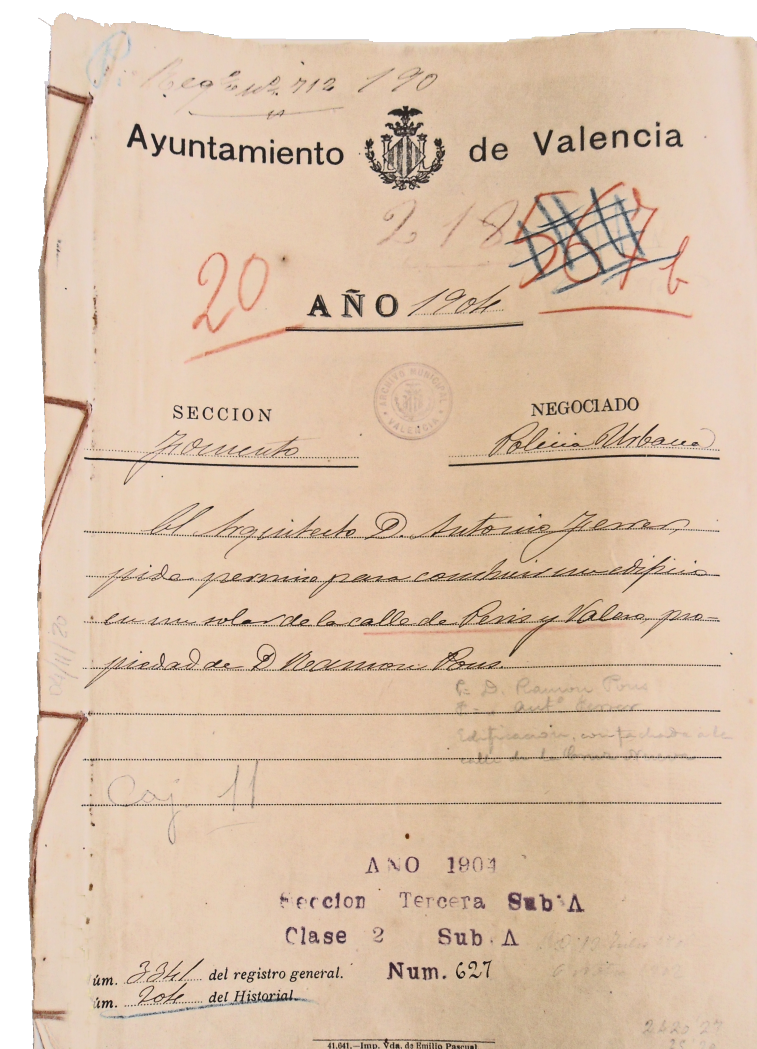 Regº nº 712 190
Ayuntamiento de Valencia
218
567 b
20
AÑO 1904
ARCHIVO MUNICIPAL
VALENCIA
SECCION
Fomento
NEGOCIADO
Policia Urbana
El Arquitecto D. Antonio Ferrer,
pide permiso para construir un edificio
en un solar de la calle de Peris y Valero, pro-
piedad de D Ramon Pons.
P- D. Ramon Pons
F- Antº Ferrer
Edificación, con fachada a la
calle de la
04/11/20
Caj. 11
AÑO 1904
Seccion Tercera Sub A
Clase 2 Sub. A
Num. 627
úm. 3341 del registro general.
úm. 204 del Historial.
41,641.—Imp. Vda. de Emilio Pascual